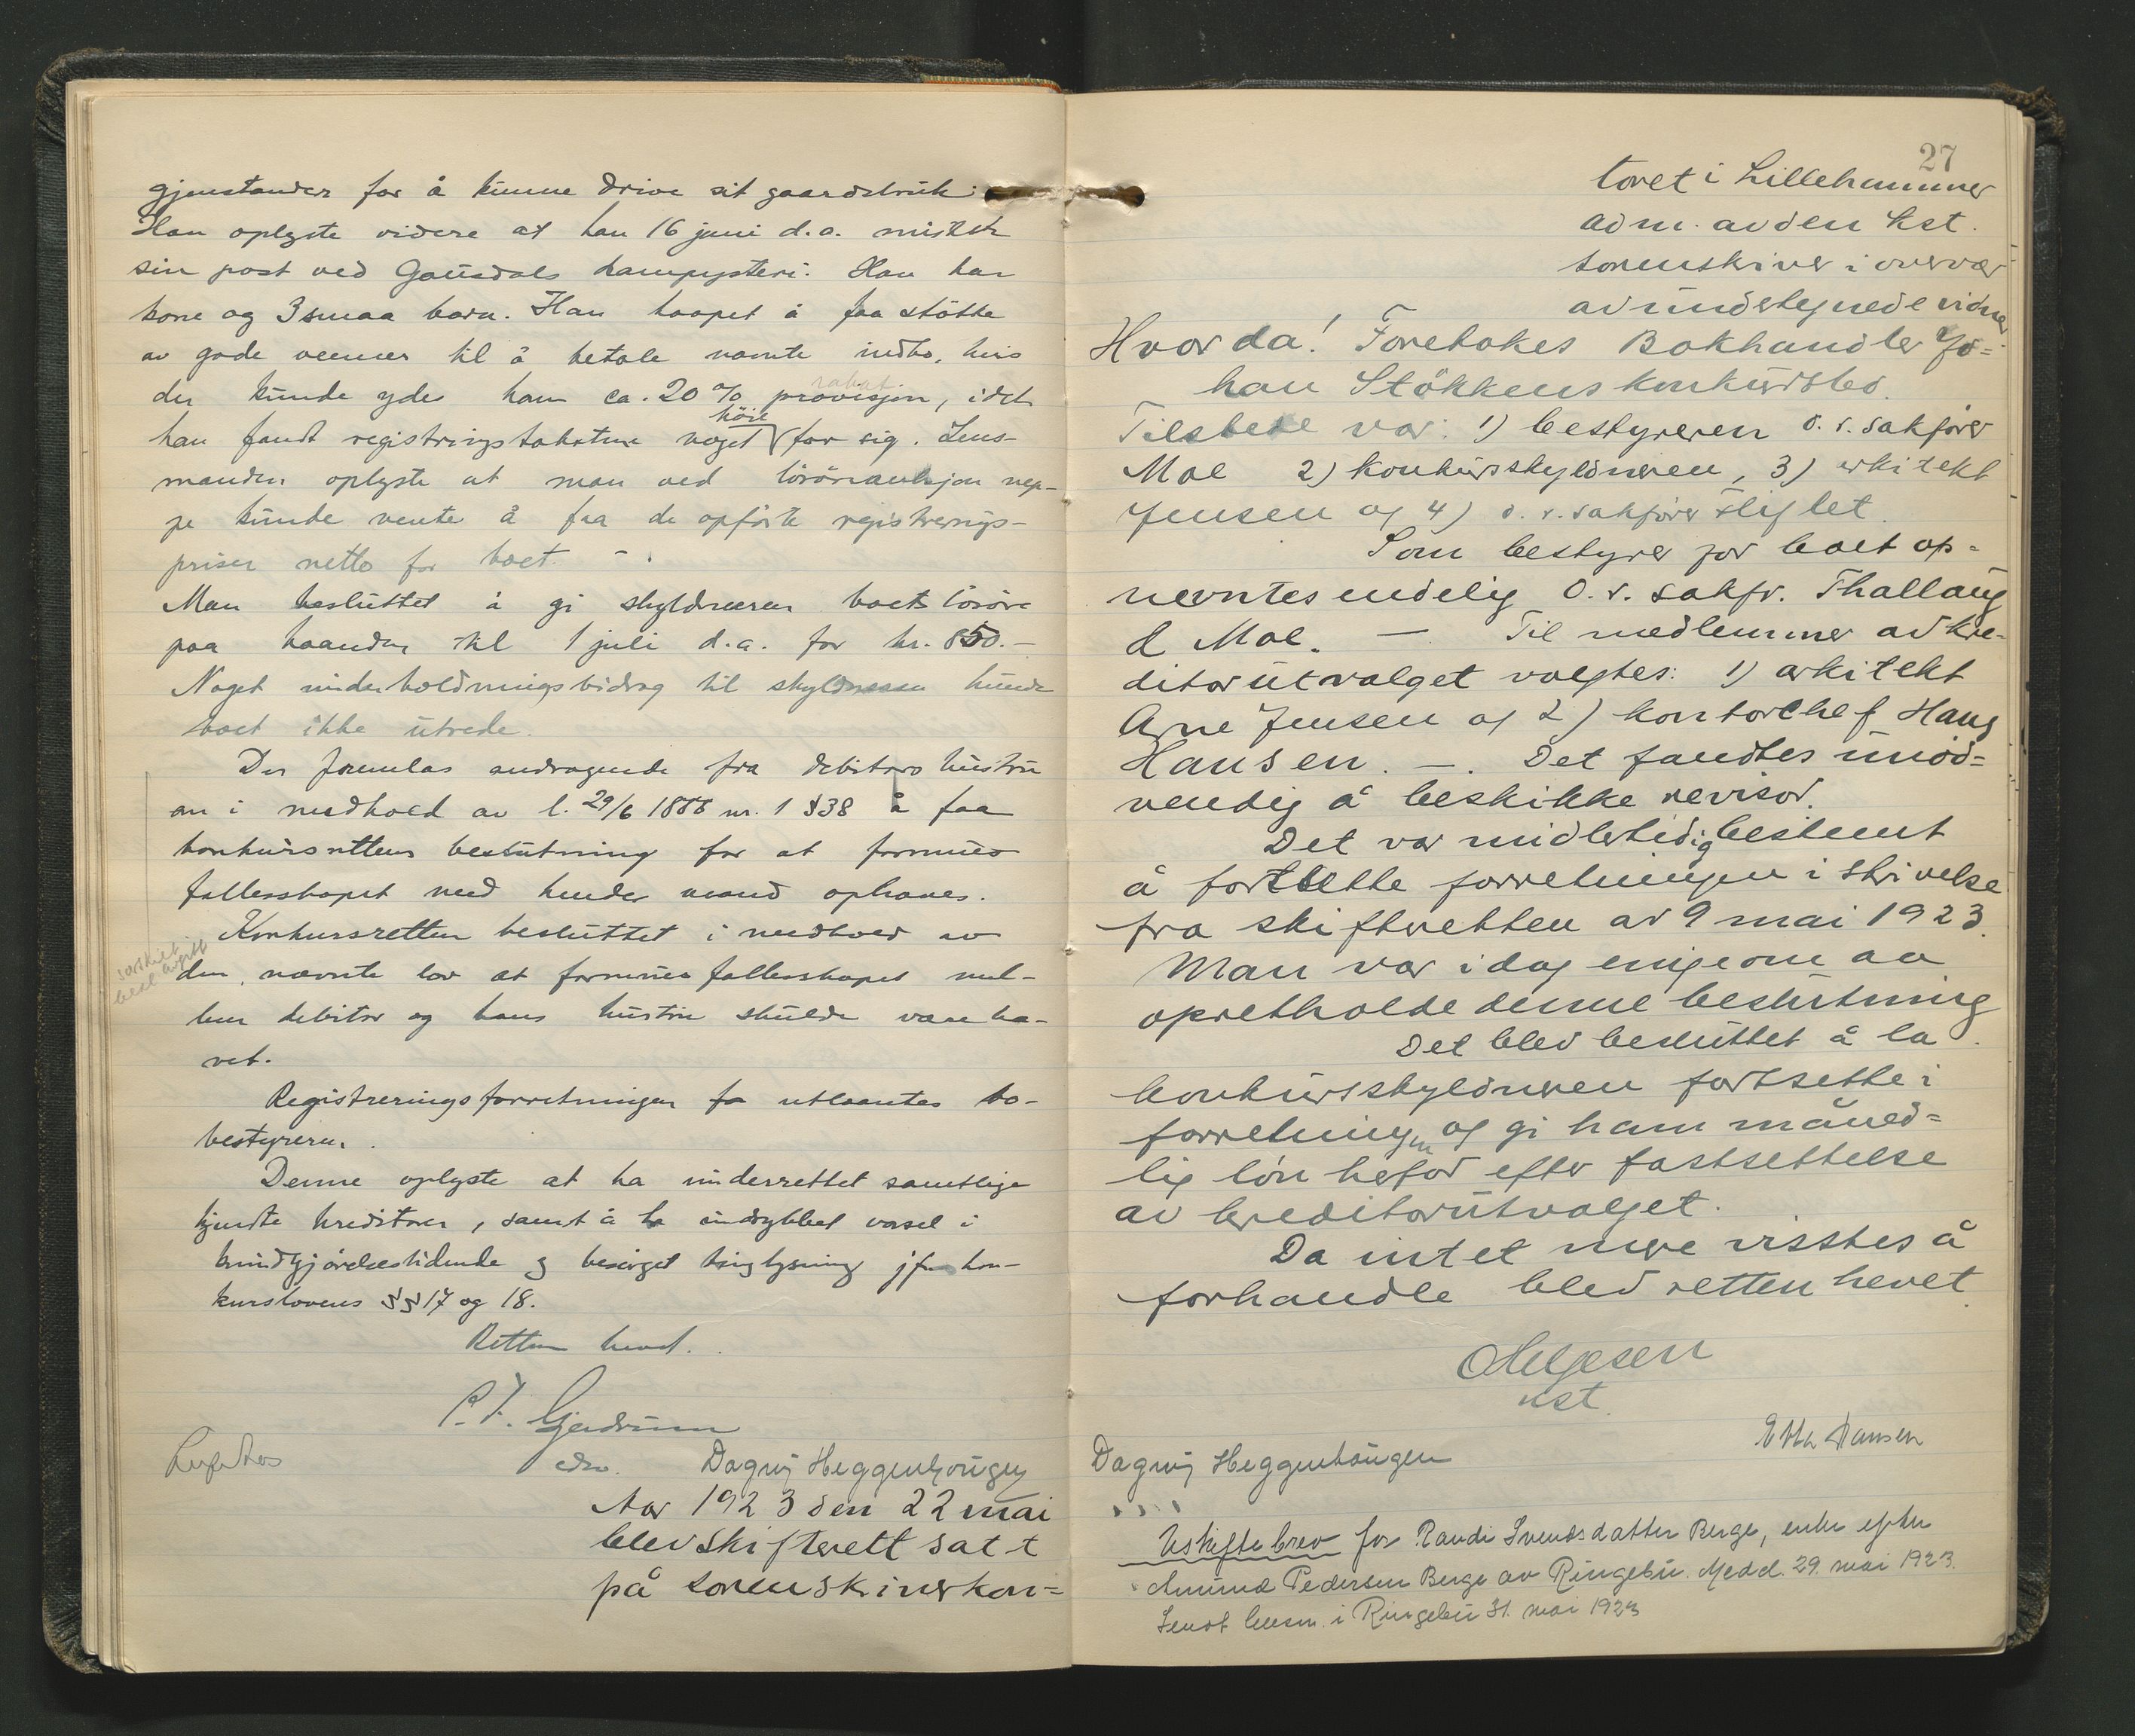 gjenstander for å kunne drive sit gaardsbruk.
Han oplyste videre at han 16 juni d.a. mister
sin post ved Gausdals kampysteri. Han har
kone og 3 smaa barn. Han haapet å faa støtte
av gode venner til å betale nævnte indbo, hvis
der kunde ydes ham ca. 20 % provisjon, idet
rabat
han fandt registringstakstene noget høie for sig. Lens-
manden oplyste at man ved løsøreauksjon nep-
pe kunde vente å faa de opførte registrerings-
priser netto for boet. -
Man besluttet å gi skyldneren boets løsøre
paa haanden til 1 juli d.a. for kr. 850.-
Noget underholdningsbidrag til skyldneren kunde
boet ikke utrede.
Der foreslaas andragende fra debitors hustru
om i medhold av l. 29/6 1888 nr. 1 § 38 å faa
konkursrettens beslutning for at formues
fællesskapet med hendes mand ophæves.
Konkursretten besluttet i medhold av
den nævnte lov at formuesfællesskapet mel-
særskilt
besl. avgitt
lem debitor og hans hustru skulde være hæ-
vet.
Registreringsforretningen fa utlaantes bo-
bestyreren.
Denne oplyste at ha underrettet samtlige
kjendte kreditorer, samt å ha indrykket varsel i
kundgjørelsestidende og besørget tinglysning jfr kon-
kurslovens §§ 17 og 18.
Retten hævet.
P. T. Gjerdrum
edsv.
Dagny Heggenhougen
Aar 1923 den 22 mai
blev skifterett satt
på sorenskriverkon=
27
toret i Lillehammer
adm. av den kst.
sorenskriver i overvær
av undertegnede vidner
Hvorda! Foretokes Bokhandler Jo=
han Stökkens konkursbo.
Tilstede var: 1) bestyreren o. r. sakfører
Moe 2) konkursskyldneren, 3) arkitekt
Jensen og 4) o. r. sakfører Fliflet.
Som bestyrer for boet op-
nevntes endelig O. r. sakfr. Thallaug
& Moe. — Til medlemmer av kre-
ditorutvalget valgtes: 1) arkitekt
Arne Jensen og 2) kontorchef Hans
Hansen. —. Det fandtes unød=
vendig å beskikke revisor.
Det var midlertidig bestemt
å fortsette forretningen i skrivelse
fra skifteretten av 9 mai 1923.
Man var idag enige om aa
opretholde denne beslutning
Det blev besluttet å la
konkursskyldneren fortsette i
forretningen og gi ham måned=
lig løn herfor efter fastsettelse
av kreditorutvalget.
Da intet mere visstes å
forhandle blev retten hevet.
OHelgesen
kst.
Dagny Heggenhaugen
Hansen
Uskiftebrev for Randi Svendsdatter Berge, enke efter
Amund Pedersen Berge av Ringebu. Medd. 29. mai 1923.
Sendt lensm. i Ringebu 31. mai 1923